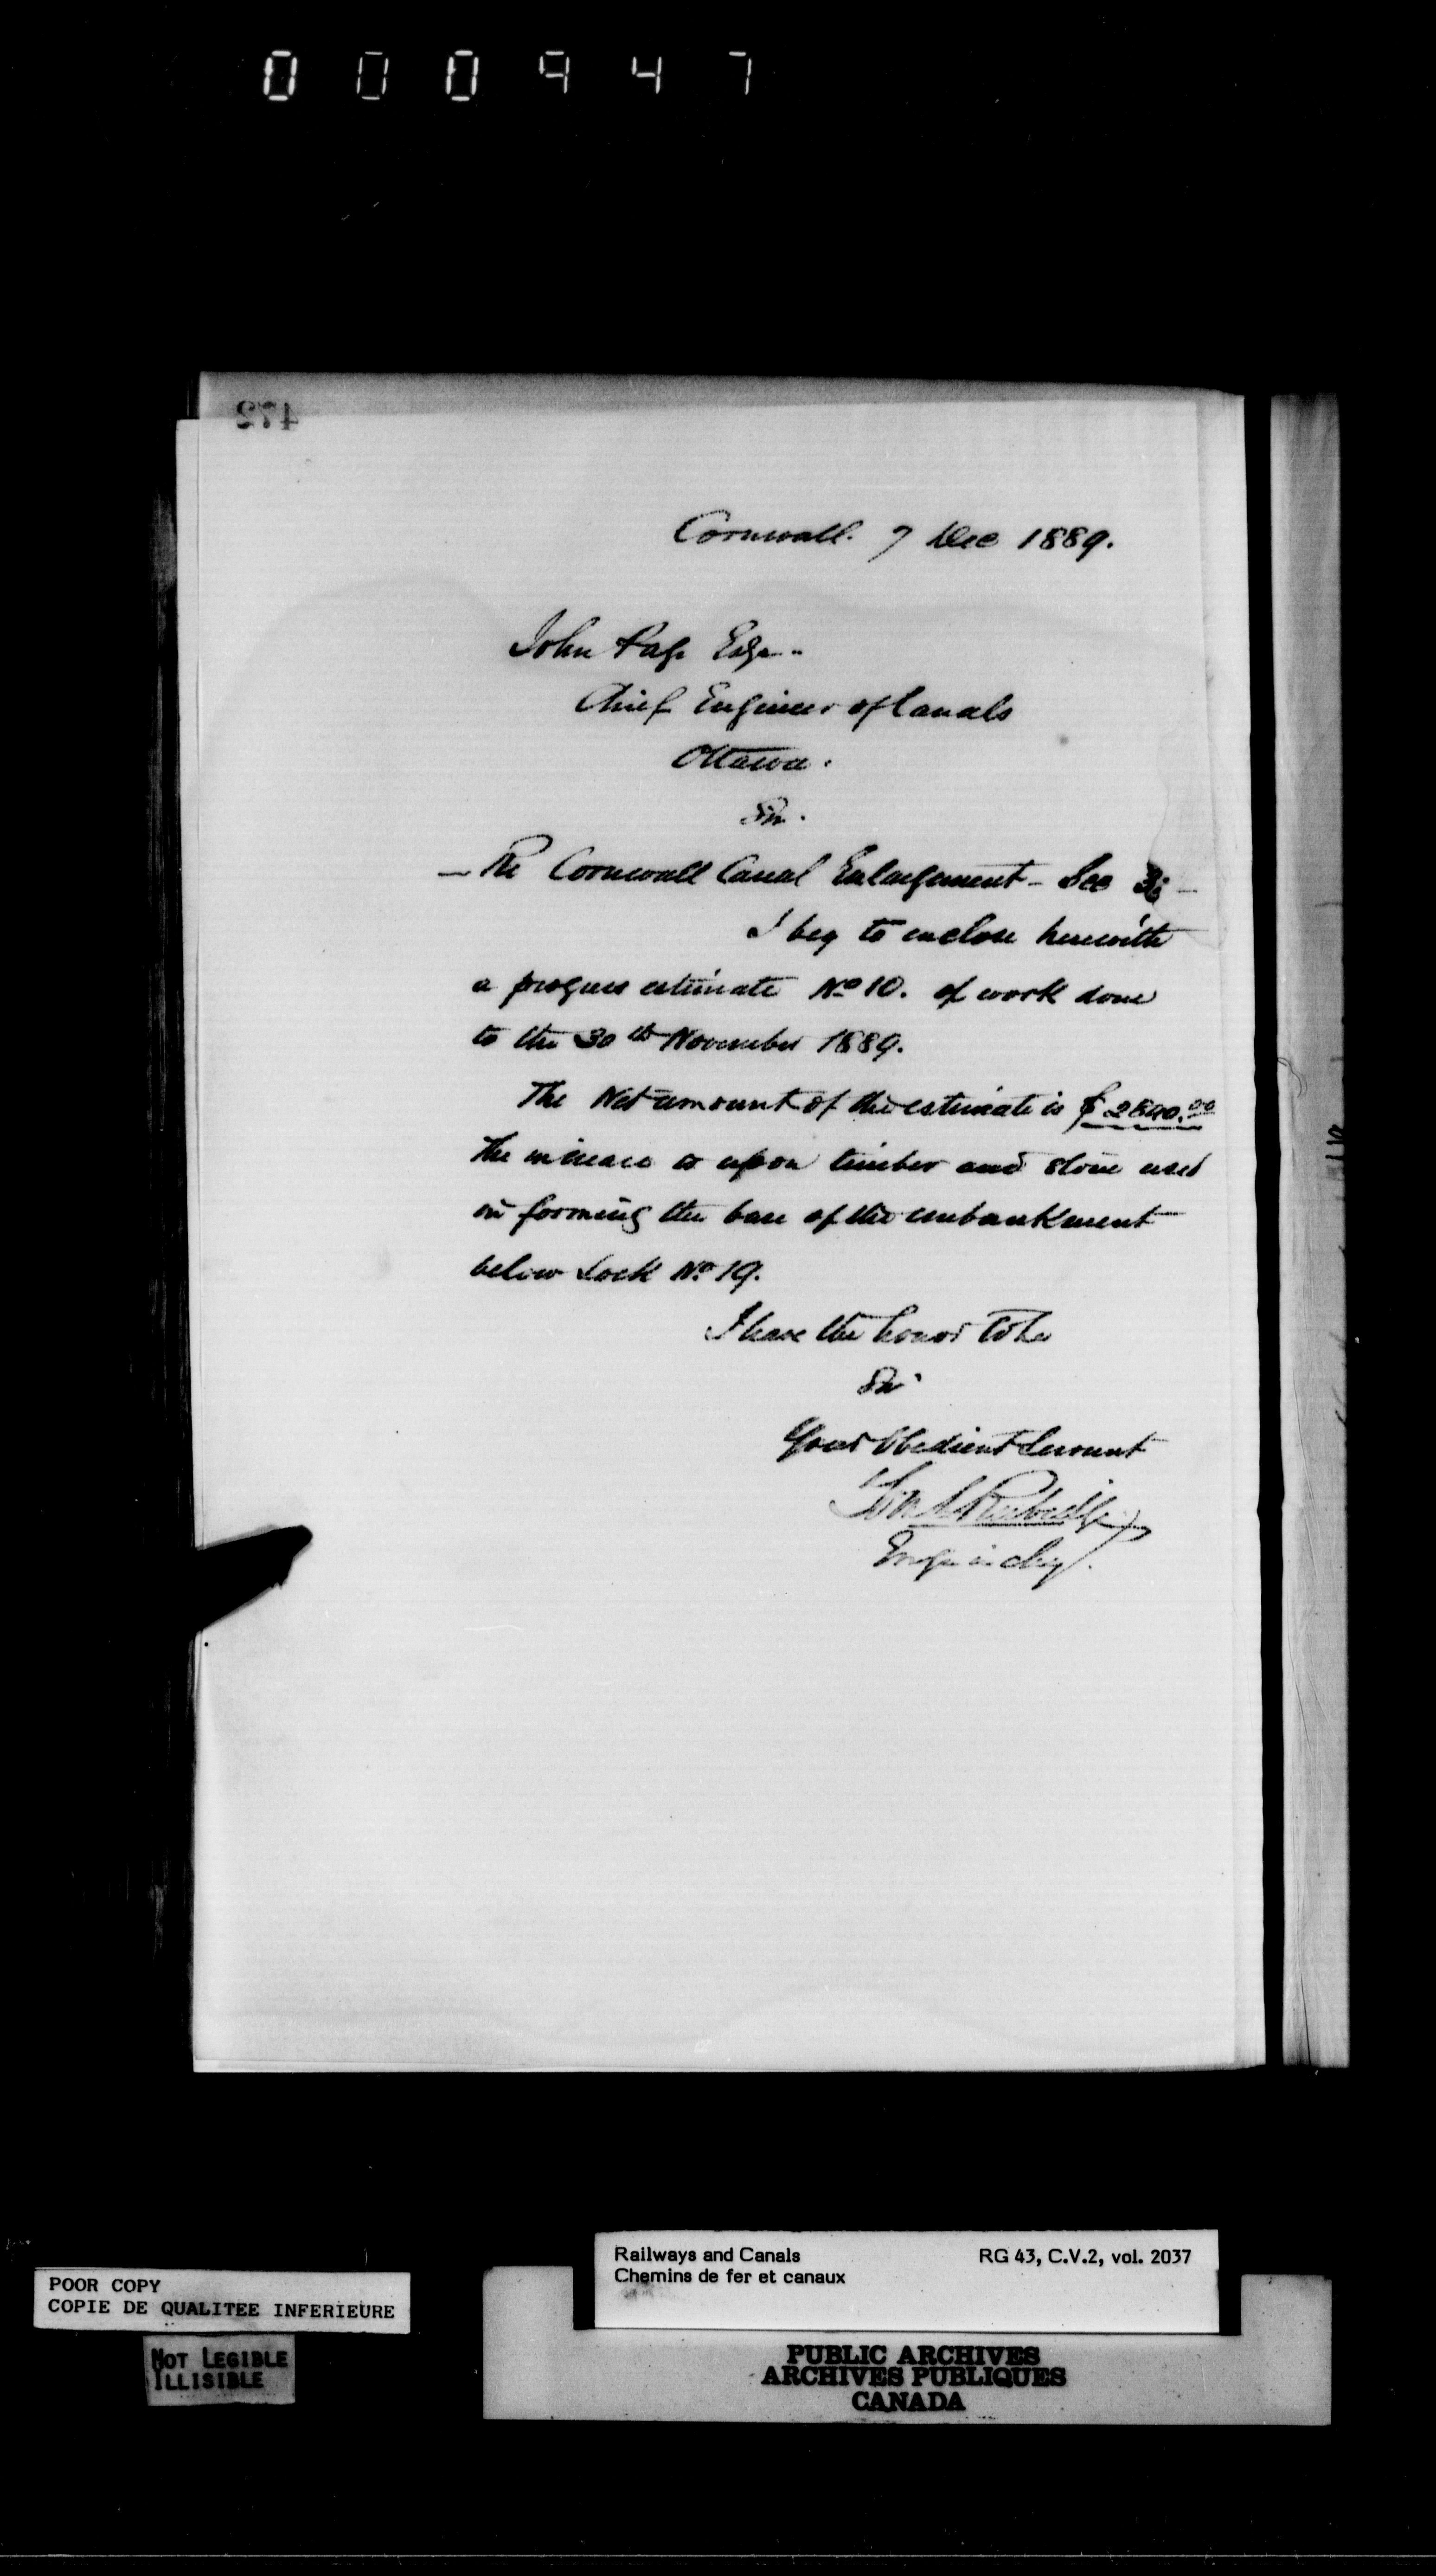 000947
472
Cornwall. 7 Dec 1889.
John Page Esqr.
Chief Engineer of Canals
Ottawa.
Sir.
— Re Cornwall Canal Enlargement - Sec 3 —
I beg to enclose herewith
a progress estimate No 10. of work done
to the 30th November 1889.
The Net amount of the estimate is
The increase is upon timber and stone used
in forming the base of the embankment
below Lock No 19.
I have the honor to be
Sir
Your Obedient Servant
Engr in chg.
Railways and Canals RG 43, C.V.2, vol. 2037
Chemins de fer et canaux
POOR COPY
COPIE DE QUALITEE INFERIEURE
NOT LEGIBLE
ILLISIBLE
PUBLIC ARCHIVES
ARCHIVES PUBLIQUES
CANADA